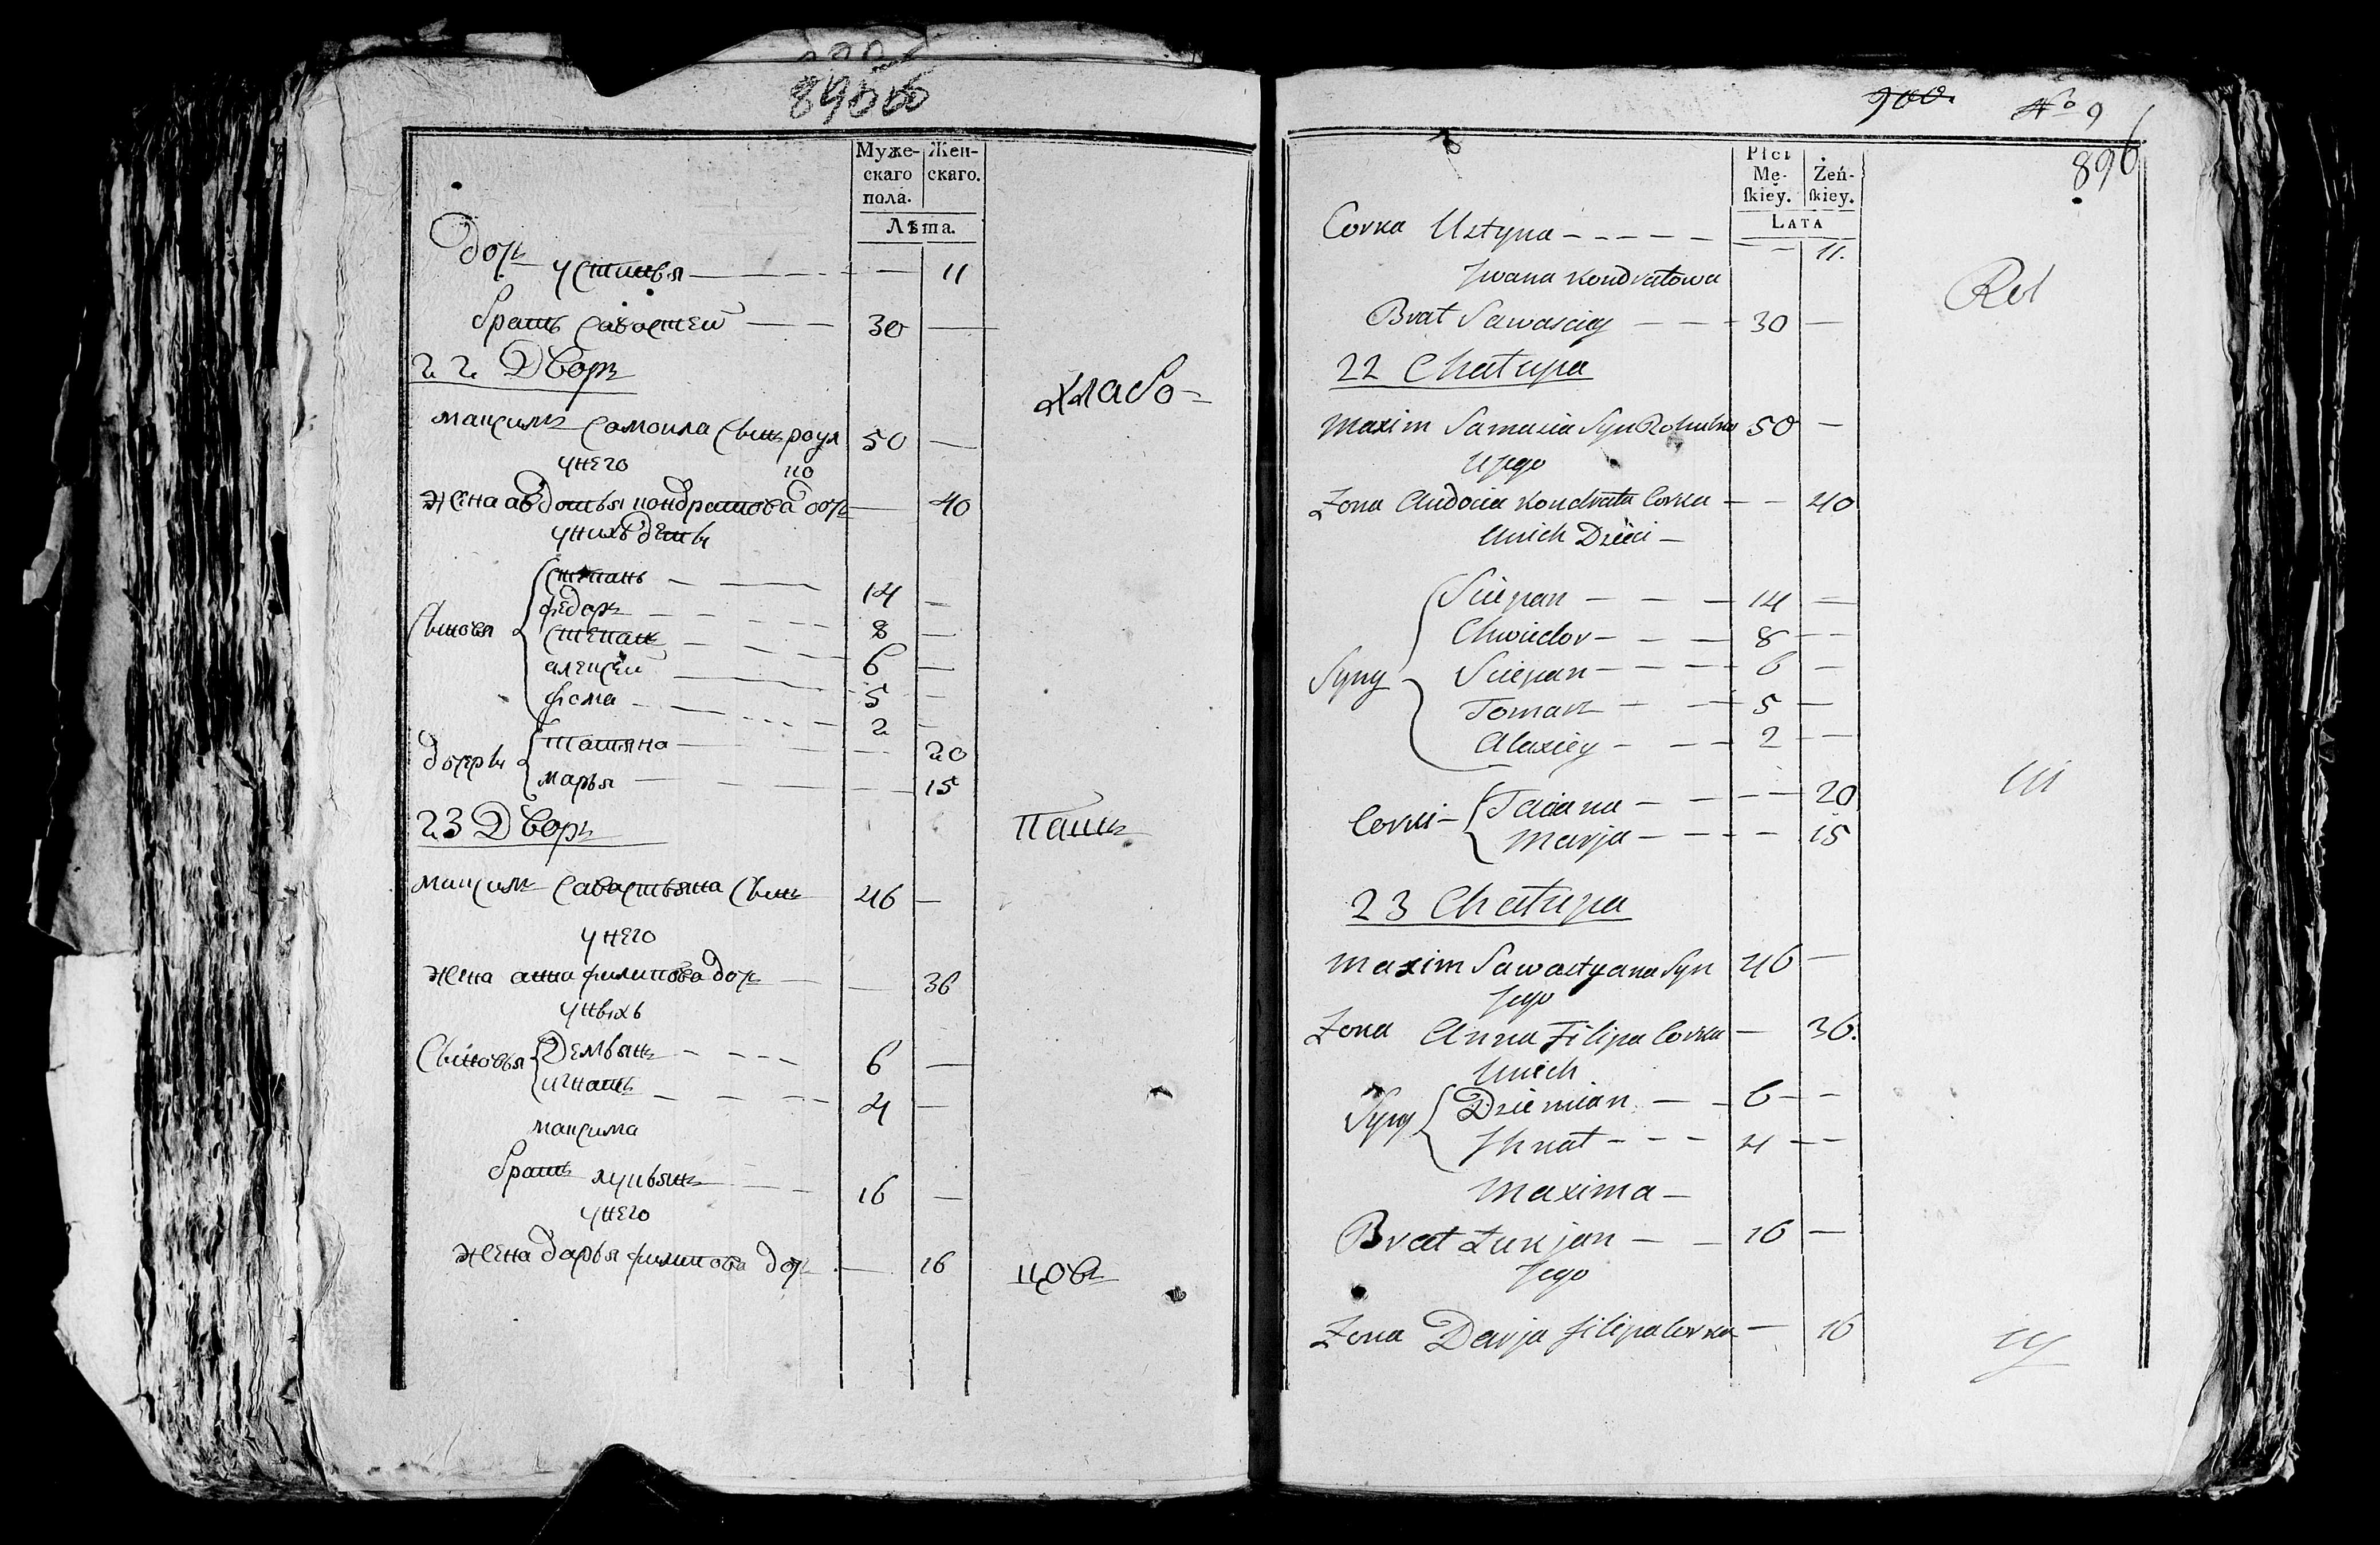 Муже-
скаго
пола.
Жен-
скаго.
Лѣта.
дочь устинья — 11
братъ савастей — 30 —
22 Дворъ
хлабо=
максимъ самоила сынъ 50 —
у него
жена авдотья кондратова дочь — 40
у нихъ дети
сыновья
степанъ — 14 —
федоръ — 8 —
степанъ — 6 —
алексей — 5 —
фома — 2 —
дочери
татяна — 20
марья — 15
23 Дворъ
пашц
максимъ савастьяна сынъ 46 —
у него
жена анна филипова дочь — 36
у ныхъ
сыновья
Демьянъ — 6 —
игнатъ — 4 —
максима
братъ лукьянъ — 16 —
у него
жена дарья филипова дочь — 16
цовъ
900.
No 9
896
Płci
Mę-
ſkiey.
Żeń-
ſkiey.
LATA
Corka Ustyna — 11.
Jwana Kondratowa
Brat Sawasciey — 30 —
22 Chatupa
Maxim Samuia Syn 50 —
U jego
Zona Audocia Kondrata Corka — 40
Unich Dzieci —
Syny
Sciepan — 14 —
Chwiedor — 8 —
Sciepan — 6 —
Tomasz — 5 —
Alaxiey — 2 —
Corki —
Taciana — 20
Marja — 15
23 Chatupa
Maxim Sawastyana Syn 46 —
Jego
Zona Anna Filipa Corka — 36.
Unich
Syny
Dziemian — 6 —
Jhnat — 4 —
Maxima —
Brat Łukjan — 16 —
Jego
Zona Darja filipa Corka — 16